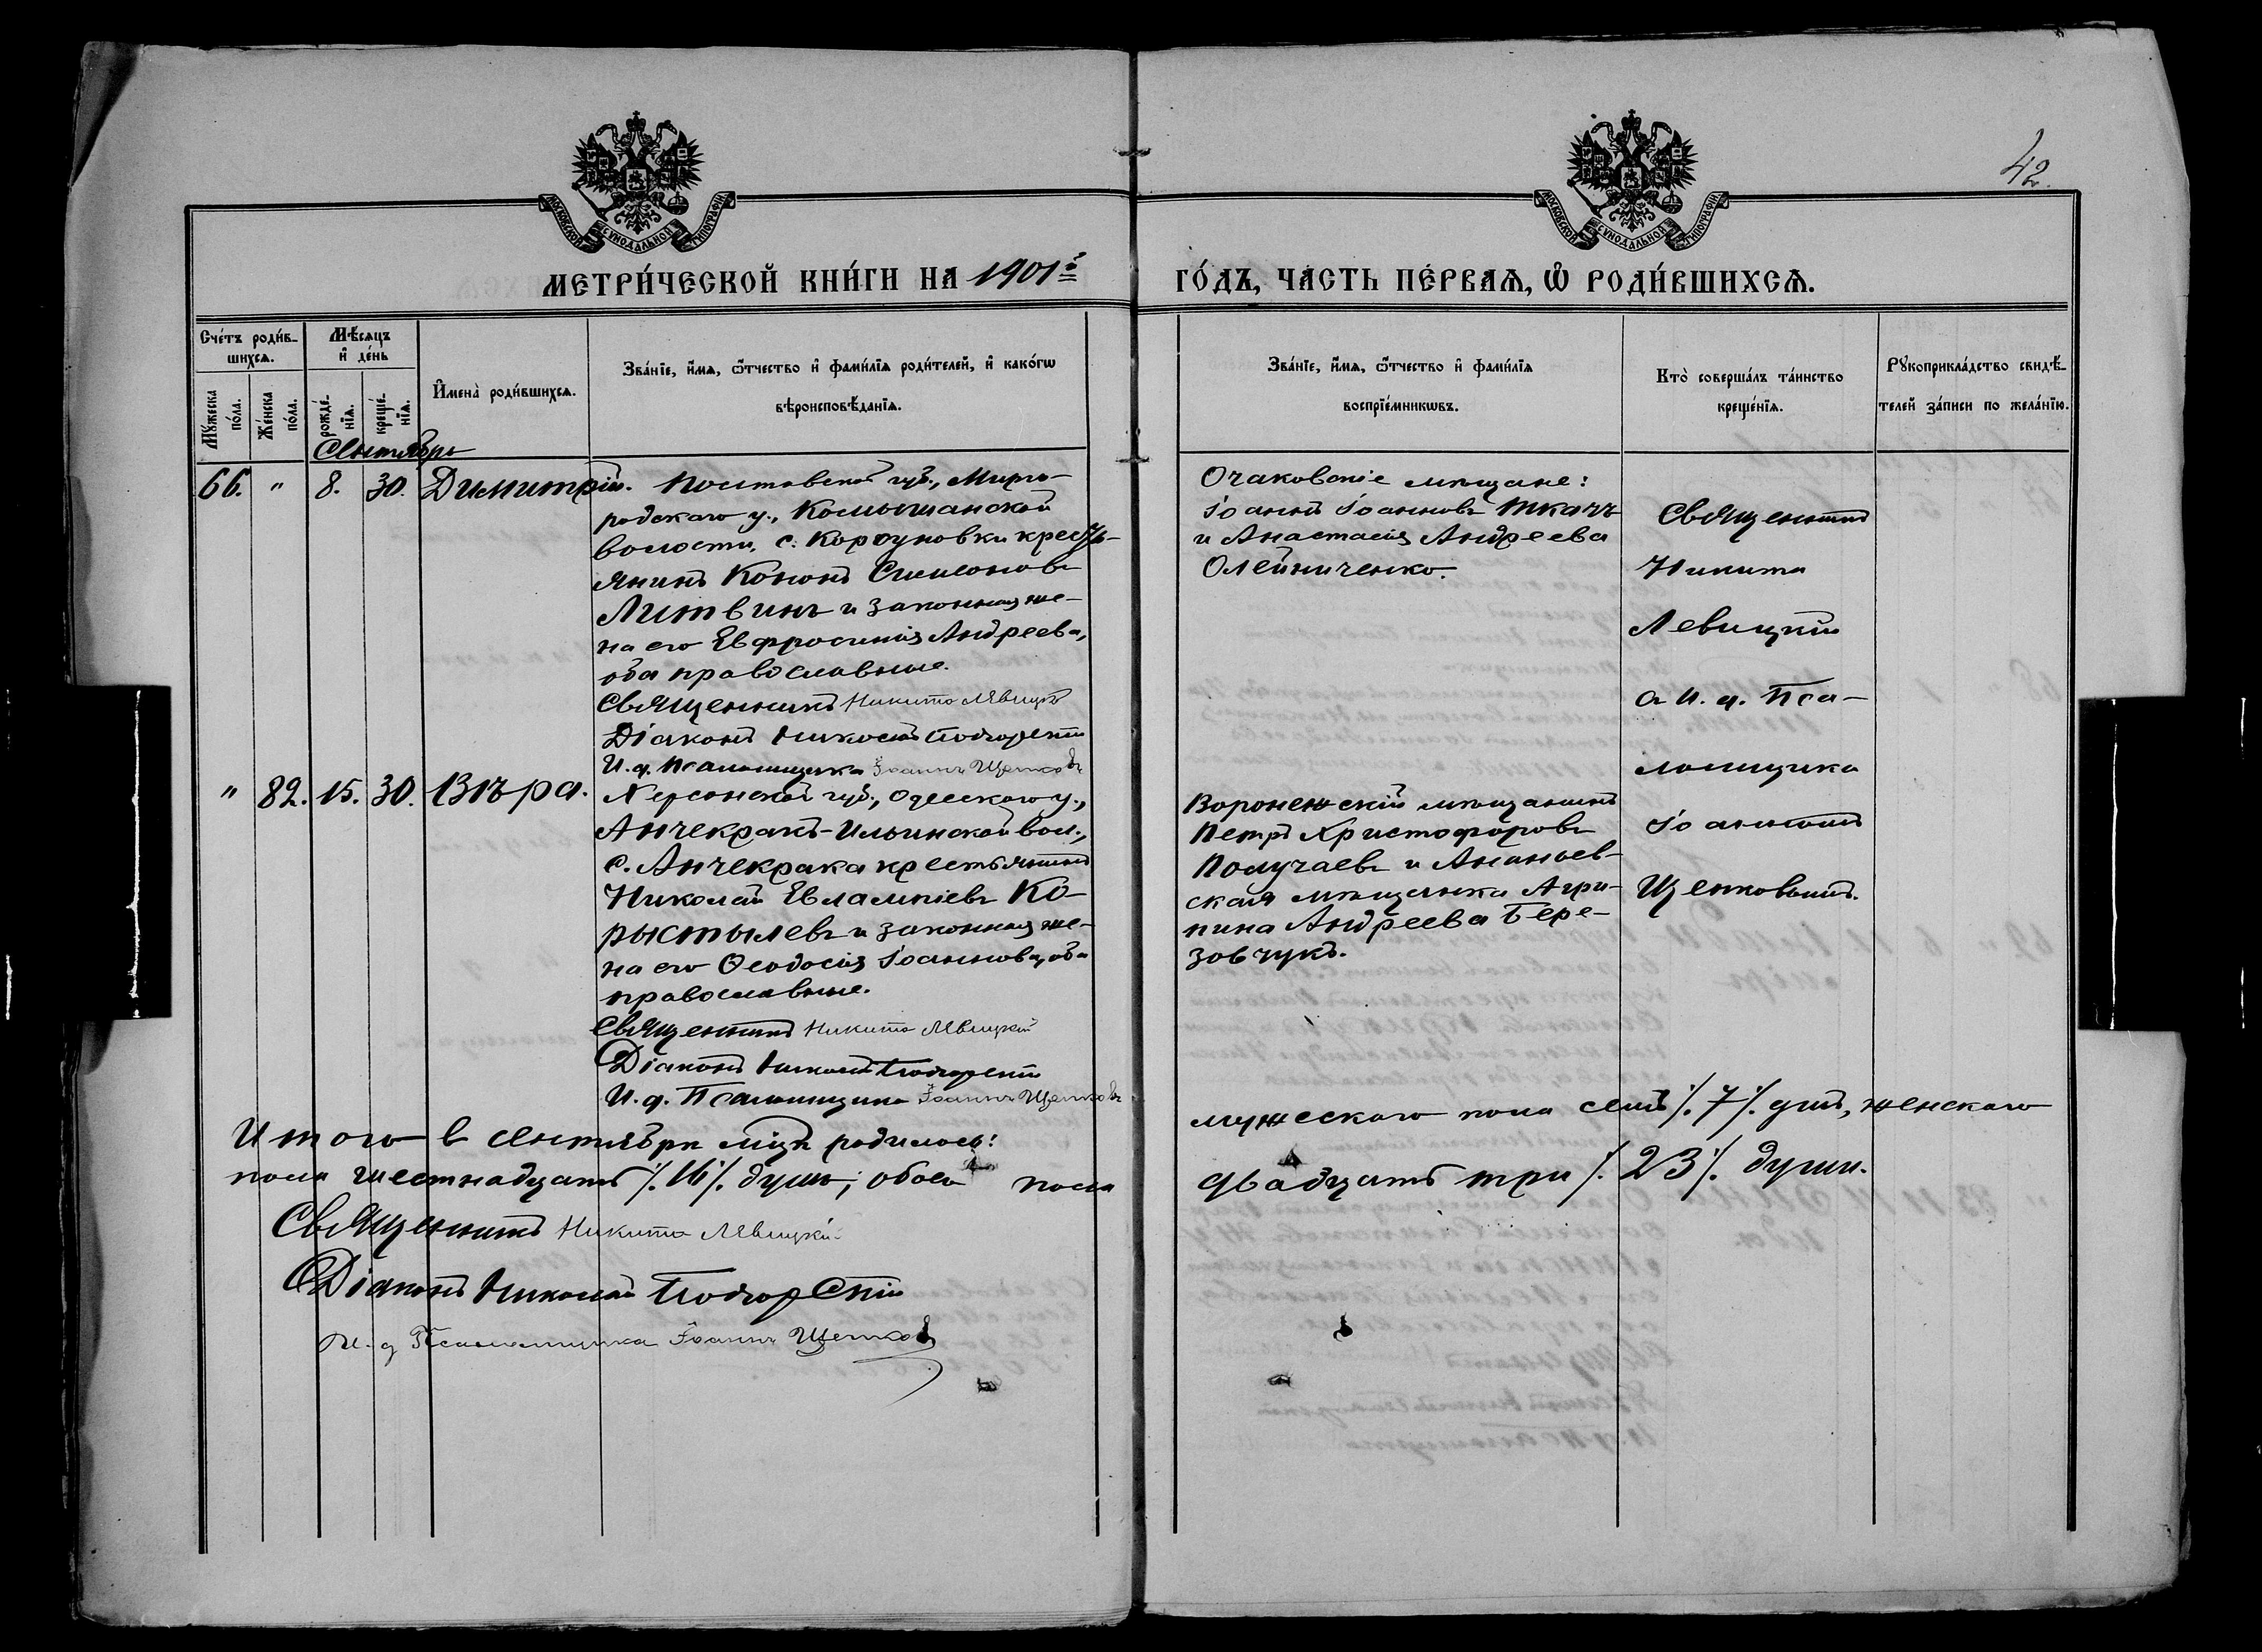 42.
МОСКОВСКОЙ СѴНОДАЛЬНОЙ ТИПОГРАФІИ
МОСКОВСКОЙ СѴНОДАЛЬНОЙ ТИПОГРАФІИ
МЕТРИ́ЧЕСКОЙ КНИ́ГИ НА 1901й
ГО́ДЪ, ЧА́СТЬ ПЕ́РВАѦ, Ѽ РОДИ́ВШИХСѦ.
Сче́тъ роди́в-
шихсѧ.
Мѣ́сѧцъ
и҆ де́нь
Мꙋ́жеска
по́ла.
Же́нска
по́ла.
рожде́-
нїѧ.
креще́-
нїѧ.
И҆мена̀ роди́вшихсѧ.
Зва́нїе, и҆́мѧ, ѻ҆́тчество и҆ фамѝлїѧ роди́телей, и҆ како́гѡ
вѣроисповѣ́данїѧ.
Зва́нїе, и҆́мѧ, ѻ҆́тчество и҆ фамѝлїѧ
воспрїе́мникѡвъ.
Кто̀ соверша́лъ та́инство
креще́нїѧ.
Рꙋкоприкла́дство свидѣ́-
телей за́писи по жела́нїю.
Сентябрь
66. " 8. 30. Димитрій.
Полтавской губ., Мирго-
родскаго у., Комышанской
волости, с. Корсуновки кресть-
янинъ Кононъ Симеоновъ
Литвинъ и законная же-
на его Евфросинія Андреева,
оба православные.
Священникъ Никита Левицкій
Діаконъ Николай Подгорскій
И. д. Псаломщика Іоаннъ Щепковъ
Очаковскіе мѣщане:
Іоаннъ Іоанновъ Ткачъ
и Анастасія Андреева
Олейниченко.
Священникъ
Никита
Левицкій
а И. д. Пса-
ломщика
Іоанномъ
Щепковымъ.
" 82. 15. 30. Вѣра.
Херсонской губ., Одесскаго у.,
Анчекракъ-Ильинской вол.,
с. Анчекрака крестьянинъ
Николай Евлампіевъ Ко-
рыстылевъ и законная же-
на его Ѳеодосія Іоаннова, оба
православные.
Священникъ Никита Левицкій
Діаконъ Николай Подгорскій
И. д. Псаломщика Іоаннъ Щепковъ
Воронежскій мѣщанинъ
Петръ Христофоровъ
Получаевъ и Ананьев-
ская мѣщанка Агри-
пина Андреева Бере-
зовчукъ.
Итого в сентябрѣ мцѣ родилось: мужескаго пола семь /. 7 /. душъ, женскаго
пола шестнадцать /. 16 /. душъ; обоего пола двадцать три /. 23 /. души.
Священникъ Никита Левицкій
Діаконъ Николай Подгорскій
И. д. Псаломщика Іоаннъ Щепковъ